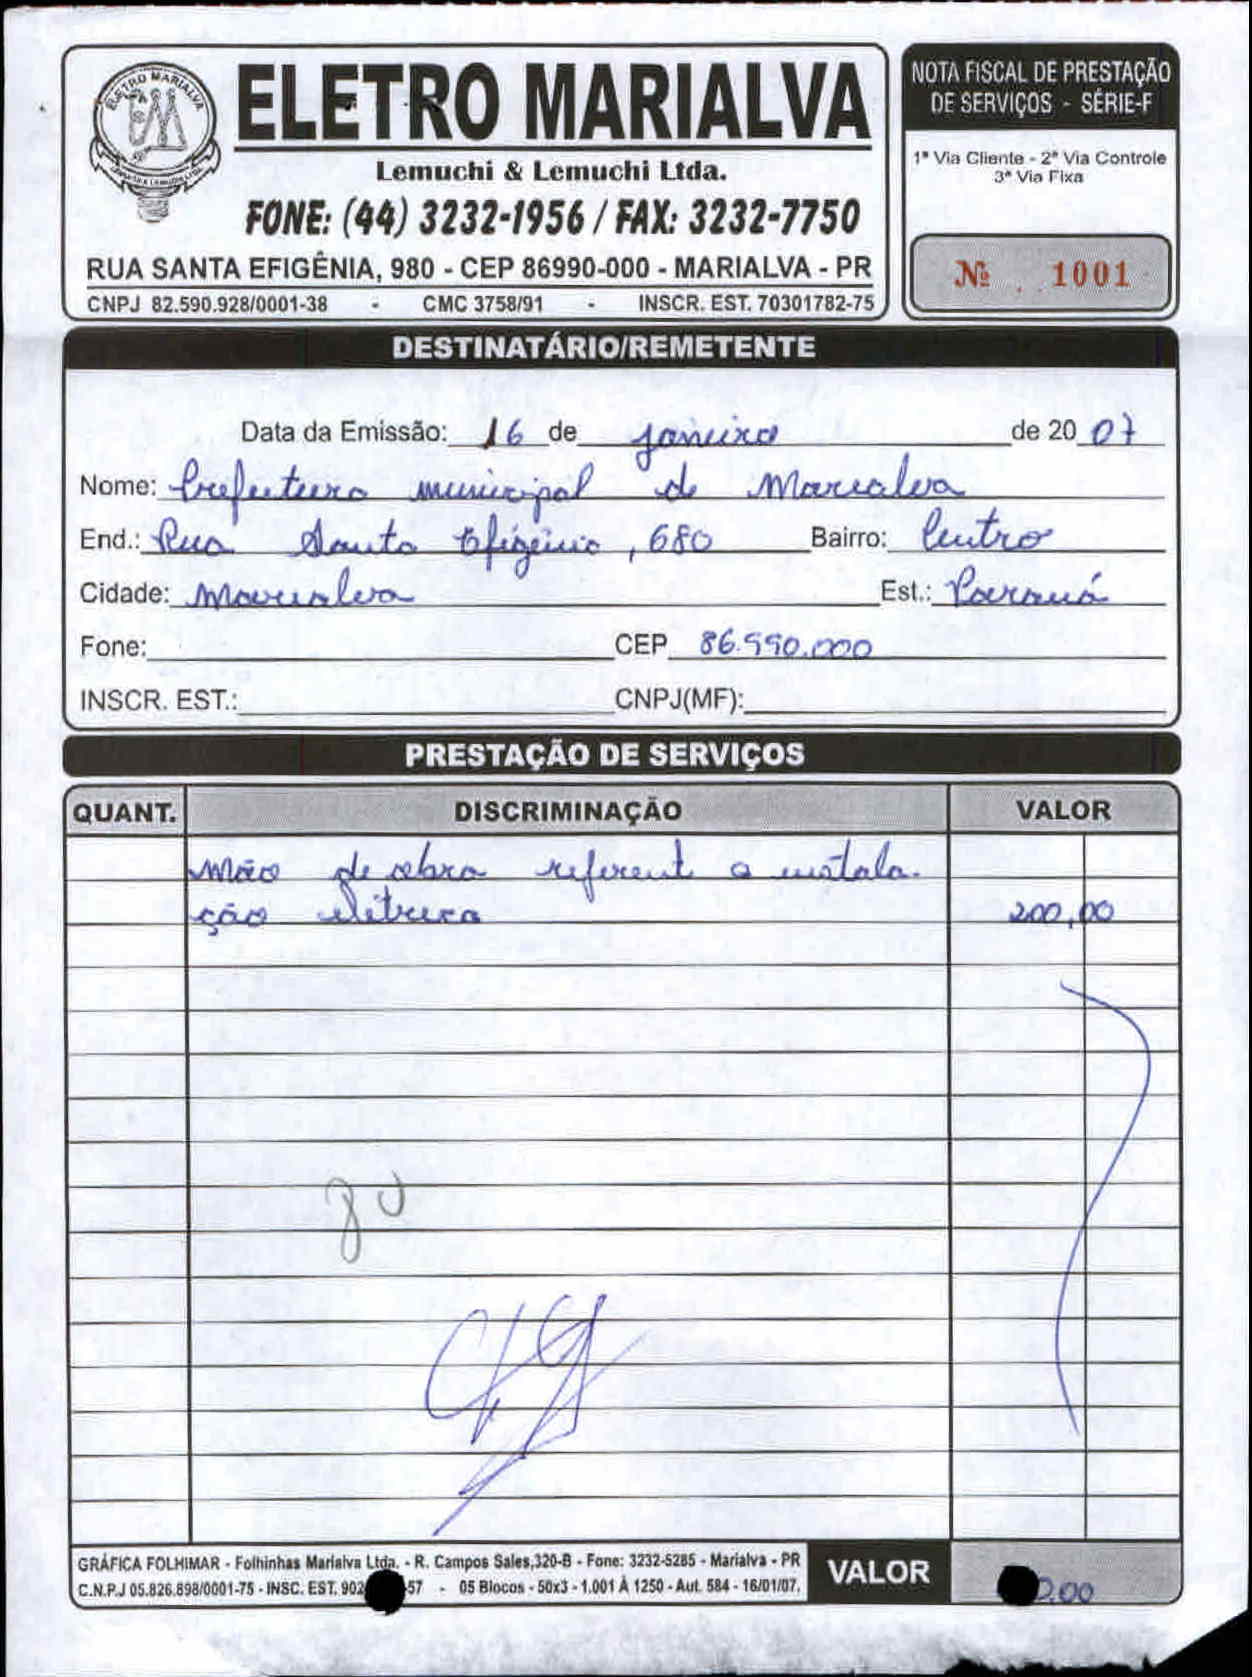 ELETRO MARIALVA
ELETRO MARIALVA
Lemuchi & Lemuchi Ltda.
FONE: (44) 3232-1956 / FAX: 3232-7750
RUA SANTA EFIGÊNIA, 980 - CEP 86990-000 - MARIALVA - PR
CNPJ 82.590.928/0001-38 - CMC 3758/91 - INSCR. EST. 70301782-75
NOTA FISCAL DE PRESTAÇÃO
DE SERVIÇOS - SÉRIE-F
1ª Via Cliente - 2ª Via Controle
3ª Via Fixa
Nº 1001
DESTINATÁRIO/REMETENTE
Data da Emissão: 16 de janeiro de 20 07
Nome: Prefeitura municipal de Marialva
End.: Rua Santa Efigênia, 680 Bairro: Centro
Cidade: Marialva Est.: Paraná
Fone: CEP 86.990.000
INSCR. EST.: CNPJ(MF):
PRESTAÇÃO DE SERVIÇOS
QUANT. DISCRIMINAÇÃO VALOR
Mão de obra referent a instala
ção elétrica 200,00
GRÁFICA FOLHIMAR - Folhinhas Marialva Ltda. - R. Campos Sales,320-B - Fone: 3232-5285 - Marialva - PR
C.N.P.J 05.826.898/0001-75 - INSC. EST. 902 57 - 05 Blocos - 50x3 - 1.001 À 1250 - Aut. 584 - 16/01/07.
VALOR 0,00